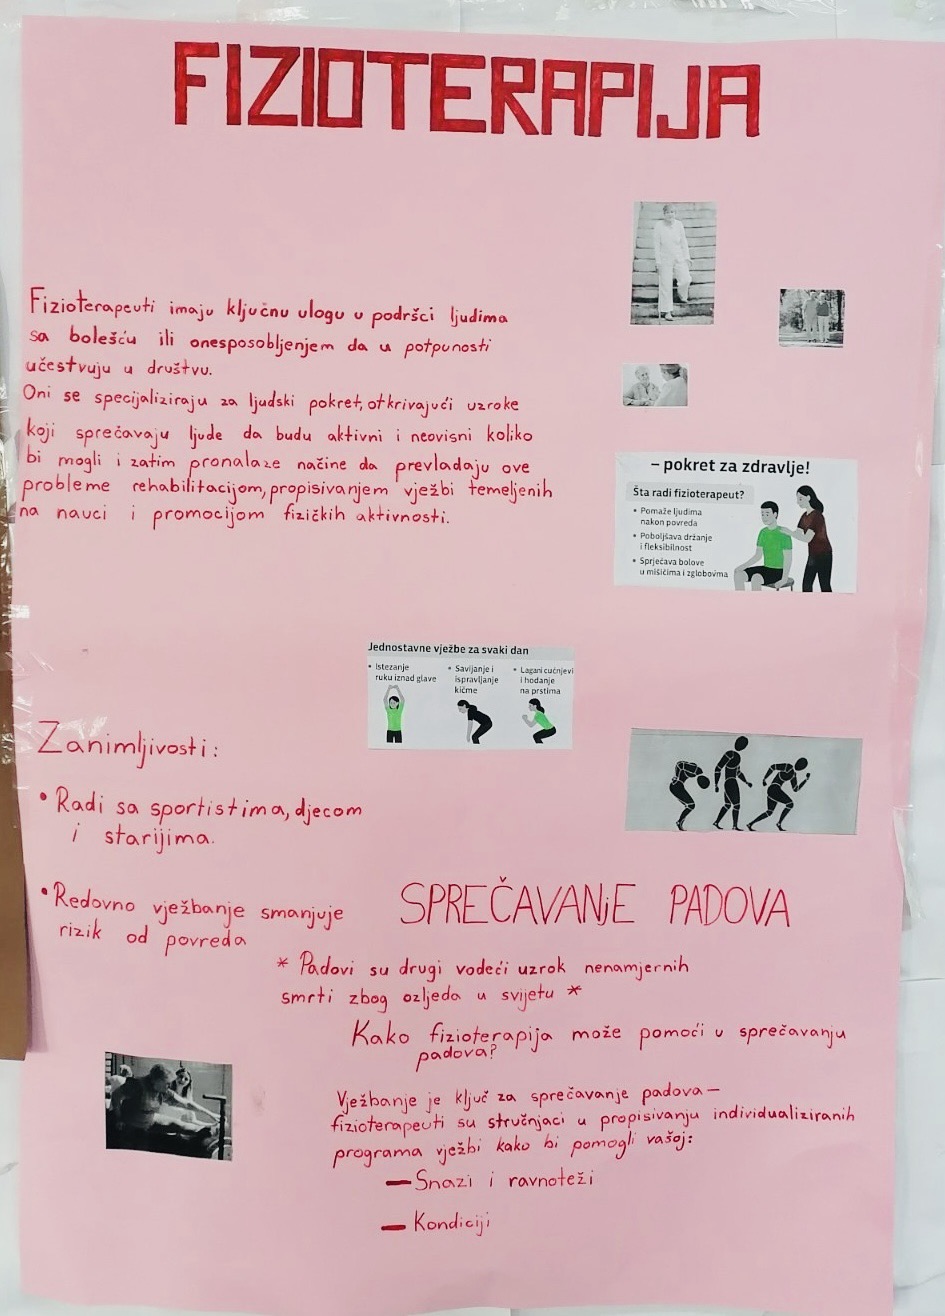 FIZIOTERAPIJA
Fizioterapeuti imaju ključnu ulogu u podršci ljudima
sa bolešću ili onesposobljenjem da u potpunosti
učestvuju u društvu.
Oni se specijaliziraju za ljudski pokret, otkrivajući uzroke
koji sprečavaju ljude da budu aktivni i neovisni koliko
bi mogli i zatim pronalaze načine da prevladaju ove
probleme rehabilitacijom, propisivanjem vježbi temeljenih
na nauci i promocijom fizičkih aktivnosti.
– pokret za zdravlje!
Šta radi fizioterapeut?
• Pomaže ljudima
nakon povreda
• Poboljšava držanje
i fleksibilnost
• Sprječava bolove
u mišićima i zglobovima
Jednostavne vježbe za svaki dan
• Istezanje
ruku iznad glave
• Savijanje i
ispravljanje
kičme
• Lagani čučnjevi
i hodanje
na prstima
Zanimljivosti:
• Radi sa sportistima, djecom
i starijima.
• Redovno vježbanje smanjuje
rizik od povreda
SPREČAVANjE PADOVA
* Padovi su drugi vodeći uzrok nenamjernih
smrti zbog ozljeda u svijetu *
Kako fizioterapija može pomoći u sprečavanju
padova?
Vježbanje je ključ za sprečavanje padova –
fizioterapeuti su stručnjaci u propisivanju individualiziranih
programa vježbi kako bi pomogli vašoj:
– Snazi i ravnoteži
– Kondiciji